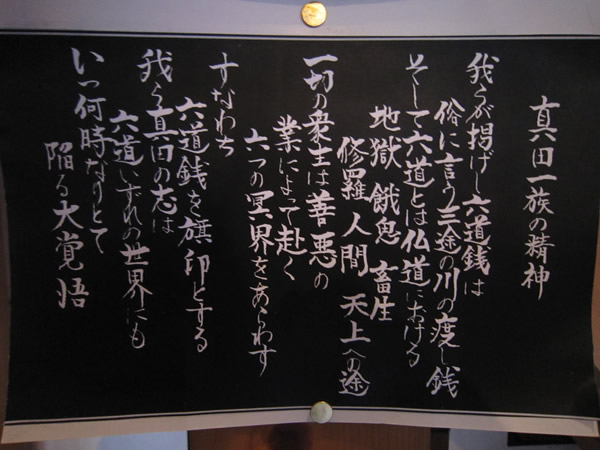 真田一族の精神
我らが掲げし六道銭は
俗に言う三途の川の渡し銭
そして六道とは仏道における
地獄 餓鬼 畜生
修羅 人間 天上への途
一切の衆生は善悪の
業によって赴く
六つの冥界をあらわす
すなわち
六道銭を旗印とする
我ら真田の志は
六道いずれの世界にも
いつ何時なりとて
陥る大覚悟